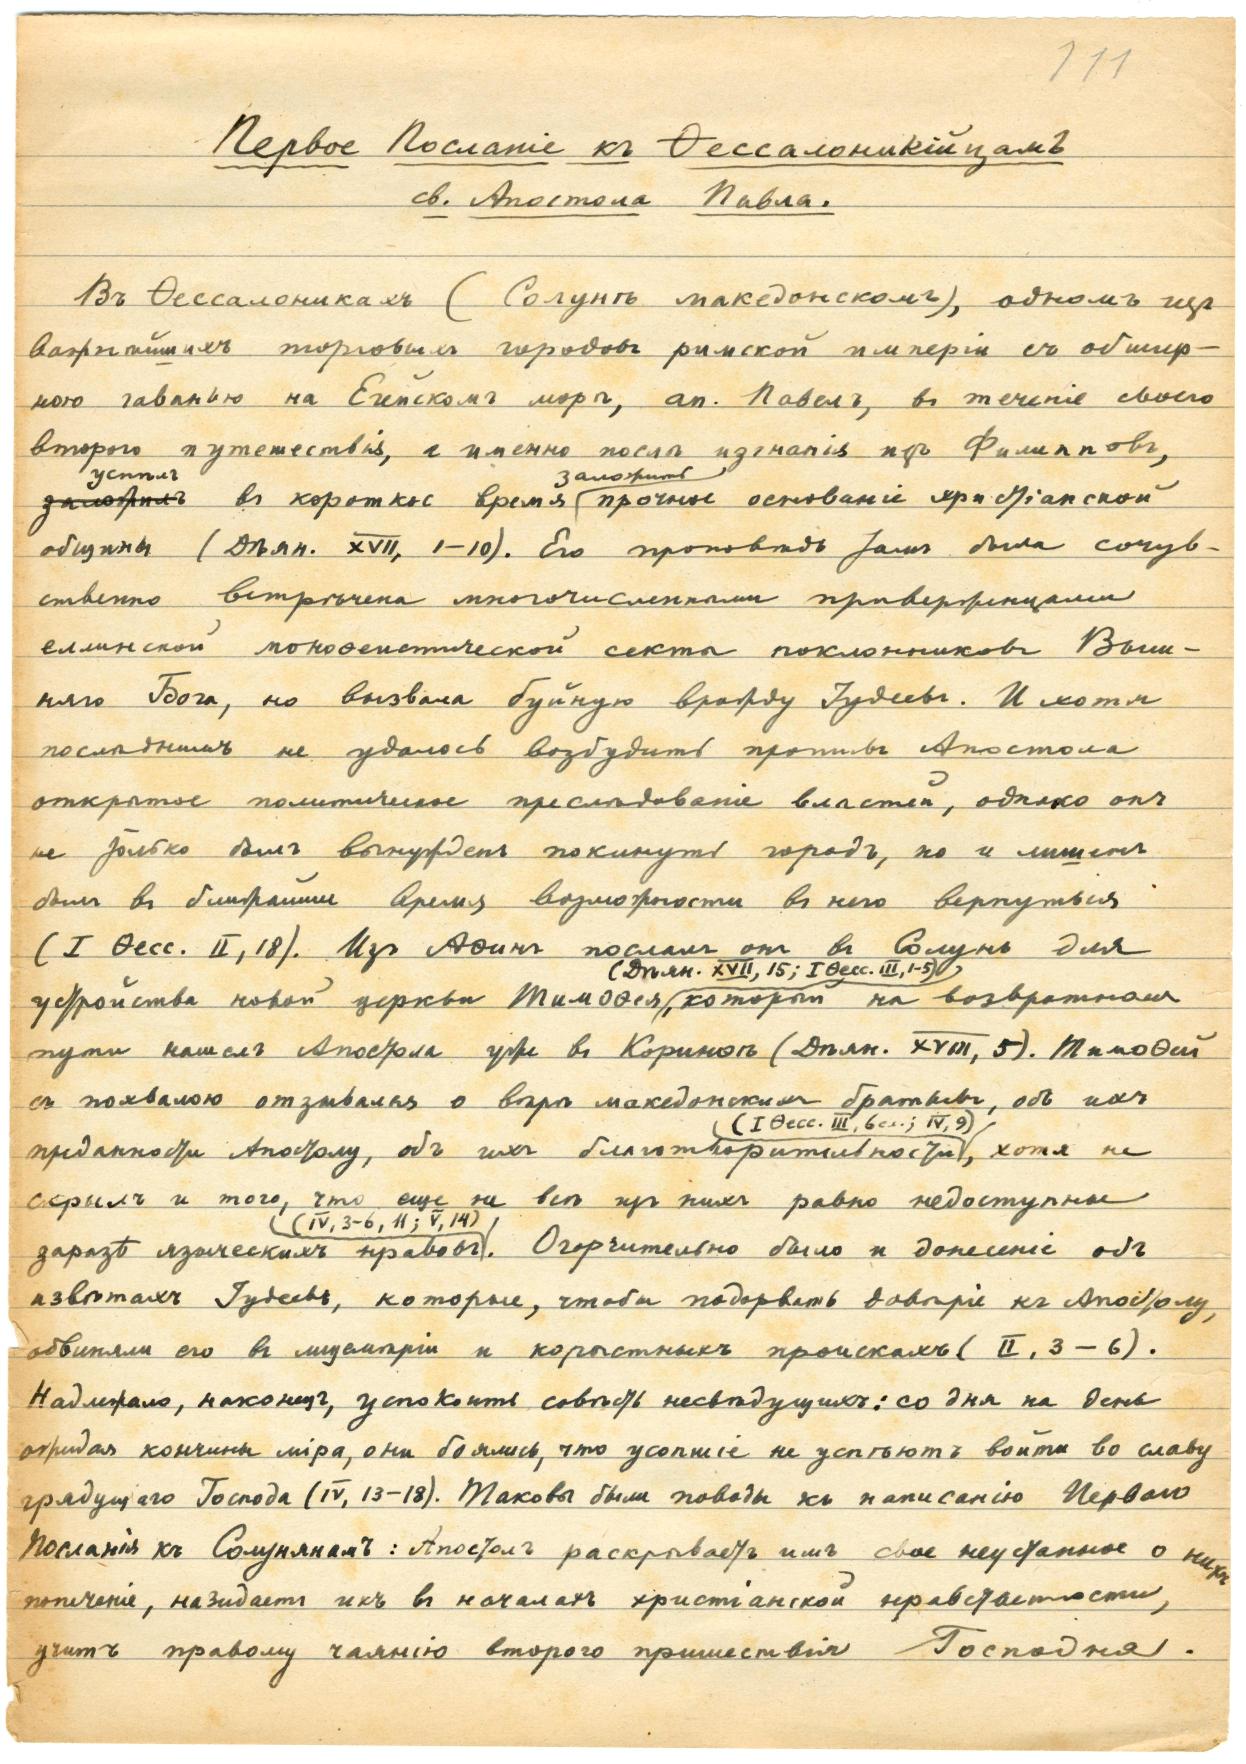 111
Первое Посланіе къ Ѳессалоникійцамъ
св. Апостола Павла.
Въ Ѳессалоникахъ (Солунѣ македонскомъ), одномъ изъ
важнѣйшихъ торговыхъ городовъ римской имперіи съ обшир-
ною гаванью на Егейскомъ морѣ, ап. Павелъ, въ теченіе своего
второго путешествія, а именно послѣ изгнанія изъ Филипповъ,
успѣлъ заложить
заложилъ въ короткое время прочное основаніе христіанской
общины (Дѣян. XVII, 1-10). Его проповѣдь тамъ была сочув-
ственно встрѣчена многочисленными приверженцами
еллинской моноѳеистической секты поклонниковъ Выш-
няго Бога, но вызвала буйную вражду Іудеевъ. И хотя
послѣднимъ не удалось возбудить противъ Апостола
открытое политическое преслѣдованіе властей, однако онъ
не только былъ вынужденъ покинуть городъ, но и лишенъ
былъ въ ближайшее время возможности въ него вернуться
(I Ѳесс. II, 18). Изъ Аѳинъ послалъ онъ въ Солунь для
(Дѣян. XVII, 15; I Ѳесс. III, 1-5)
устройства новой церкви Тимоѳея, который на возвратномъ
пути нашелъ Апостола уже въ Коринѳѣ (Дѣян. XVIII, 5). Тимоѳей
съ похвалою отзывался о вѣрѣ македонскихъ братьевъ, объ ихъ
(I Ѳесс. III, 6 сл.; IV, 9)
преданности Апостолу, объ ихъ благотворительности, хотя не
скрылъ и того, что еще не всѣ изъ нихъ равно недоступны
(IV, 3-6, 11; V, 14)
заразѣ языческихъ нравовъ. Огорчительно было и донесеніе объ
извѣтахъ Іудеевъ, которые, чтобы подорвать довѣріе къ Апостолу,
обвиняли его въ лицемѣріи и корыстныхъ проискахъ (II, 3-6).
Надлежало, наконецъ, успокоить совѣсть несвѣдущихъ: со дня на день
ожидая кончины міра, они боялись, что усопшіе не успѣютъ войти во славу
грядущаго Господа (IV, 13-18). Таковы были поводы къ написанію Перваго
Посланія къ Солунянамъ: Апостолъ раскрываетъ имъ свое неустанное о нихъ
попеченіе, назидаетъ ихъ въ началахъ христіанской нравственности,
учитъ правому чаянію второго пришествія Господня.